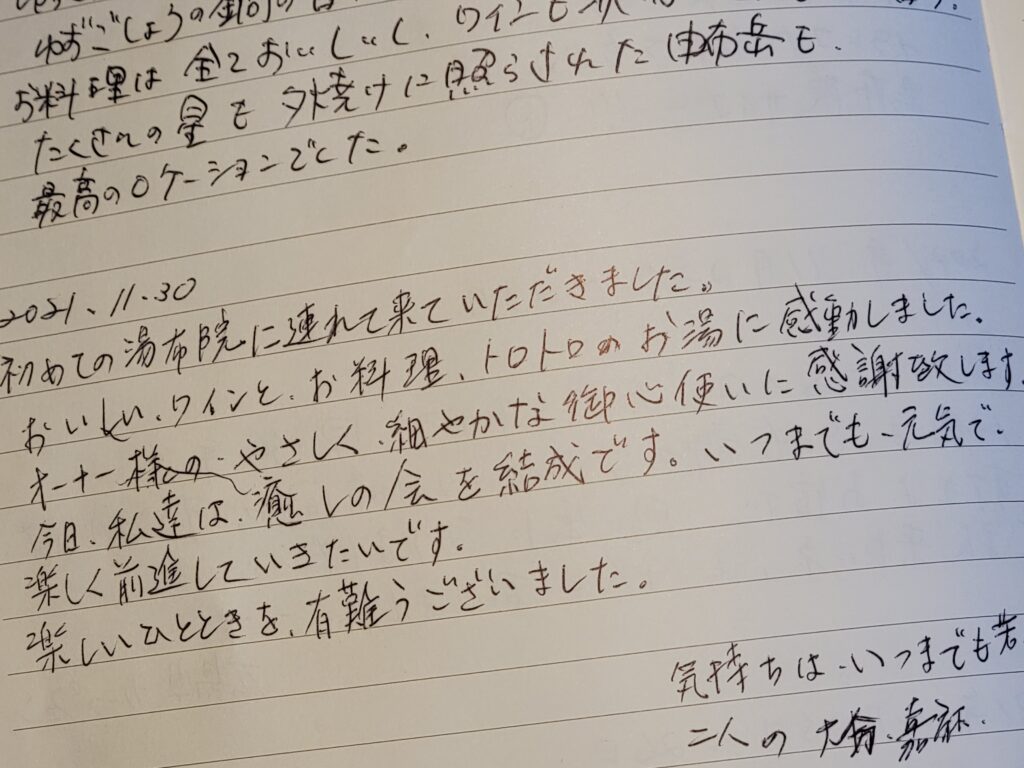 ゆずごしょうの
お料理は全ておいしいし、ワインも
たくさんの星も夕焼けに照らされた由布岳も、
最高のロケーションでした。
2021.11.30
初めての湯布院に連れて来ていただきました。
おいしい、ワインと、お料理、トロトロのお湯に感動しました。
オーナー様の、やさしく、細やかな御心使いに感謝致します
今日、私達は、癒しの会を結成です。いつまでも、元気で、
楽しく前進していきたいです。
楽しいひとときを、有難うございました。
気持ちは、いつまでも若
二人の